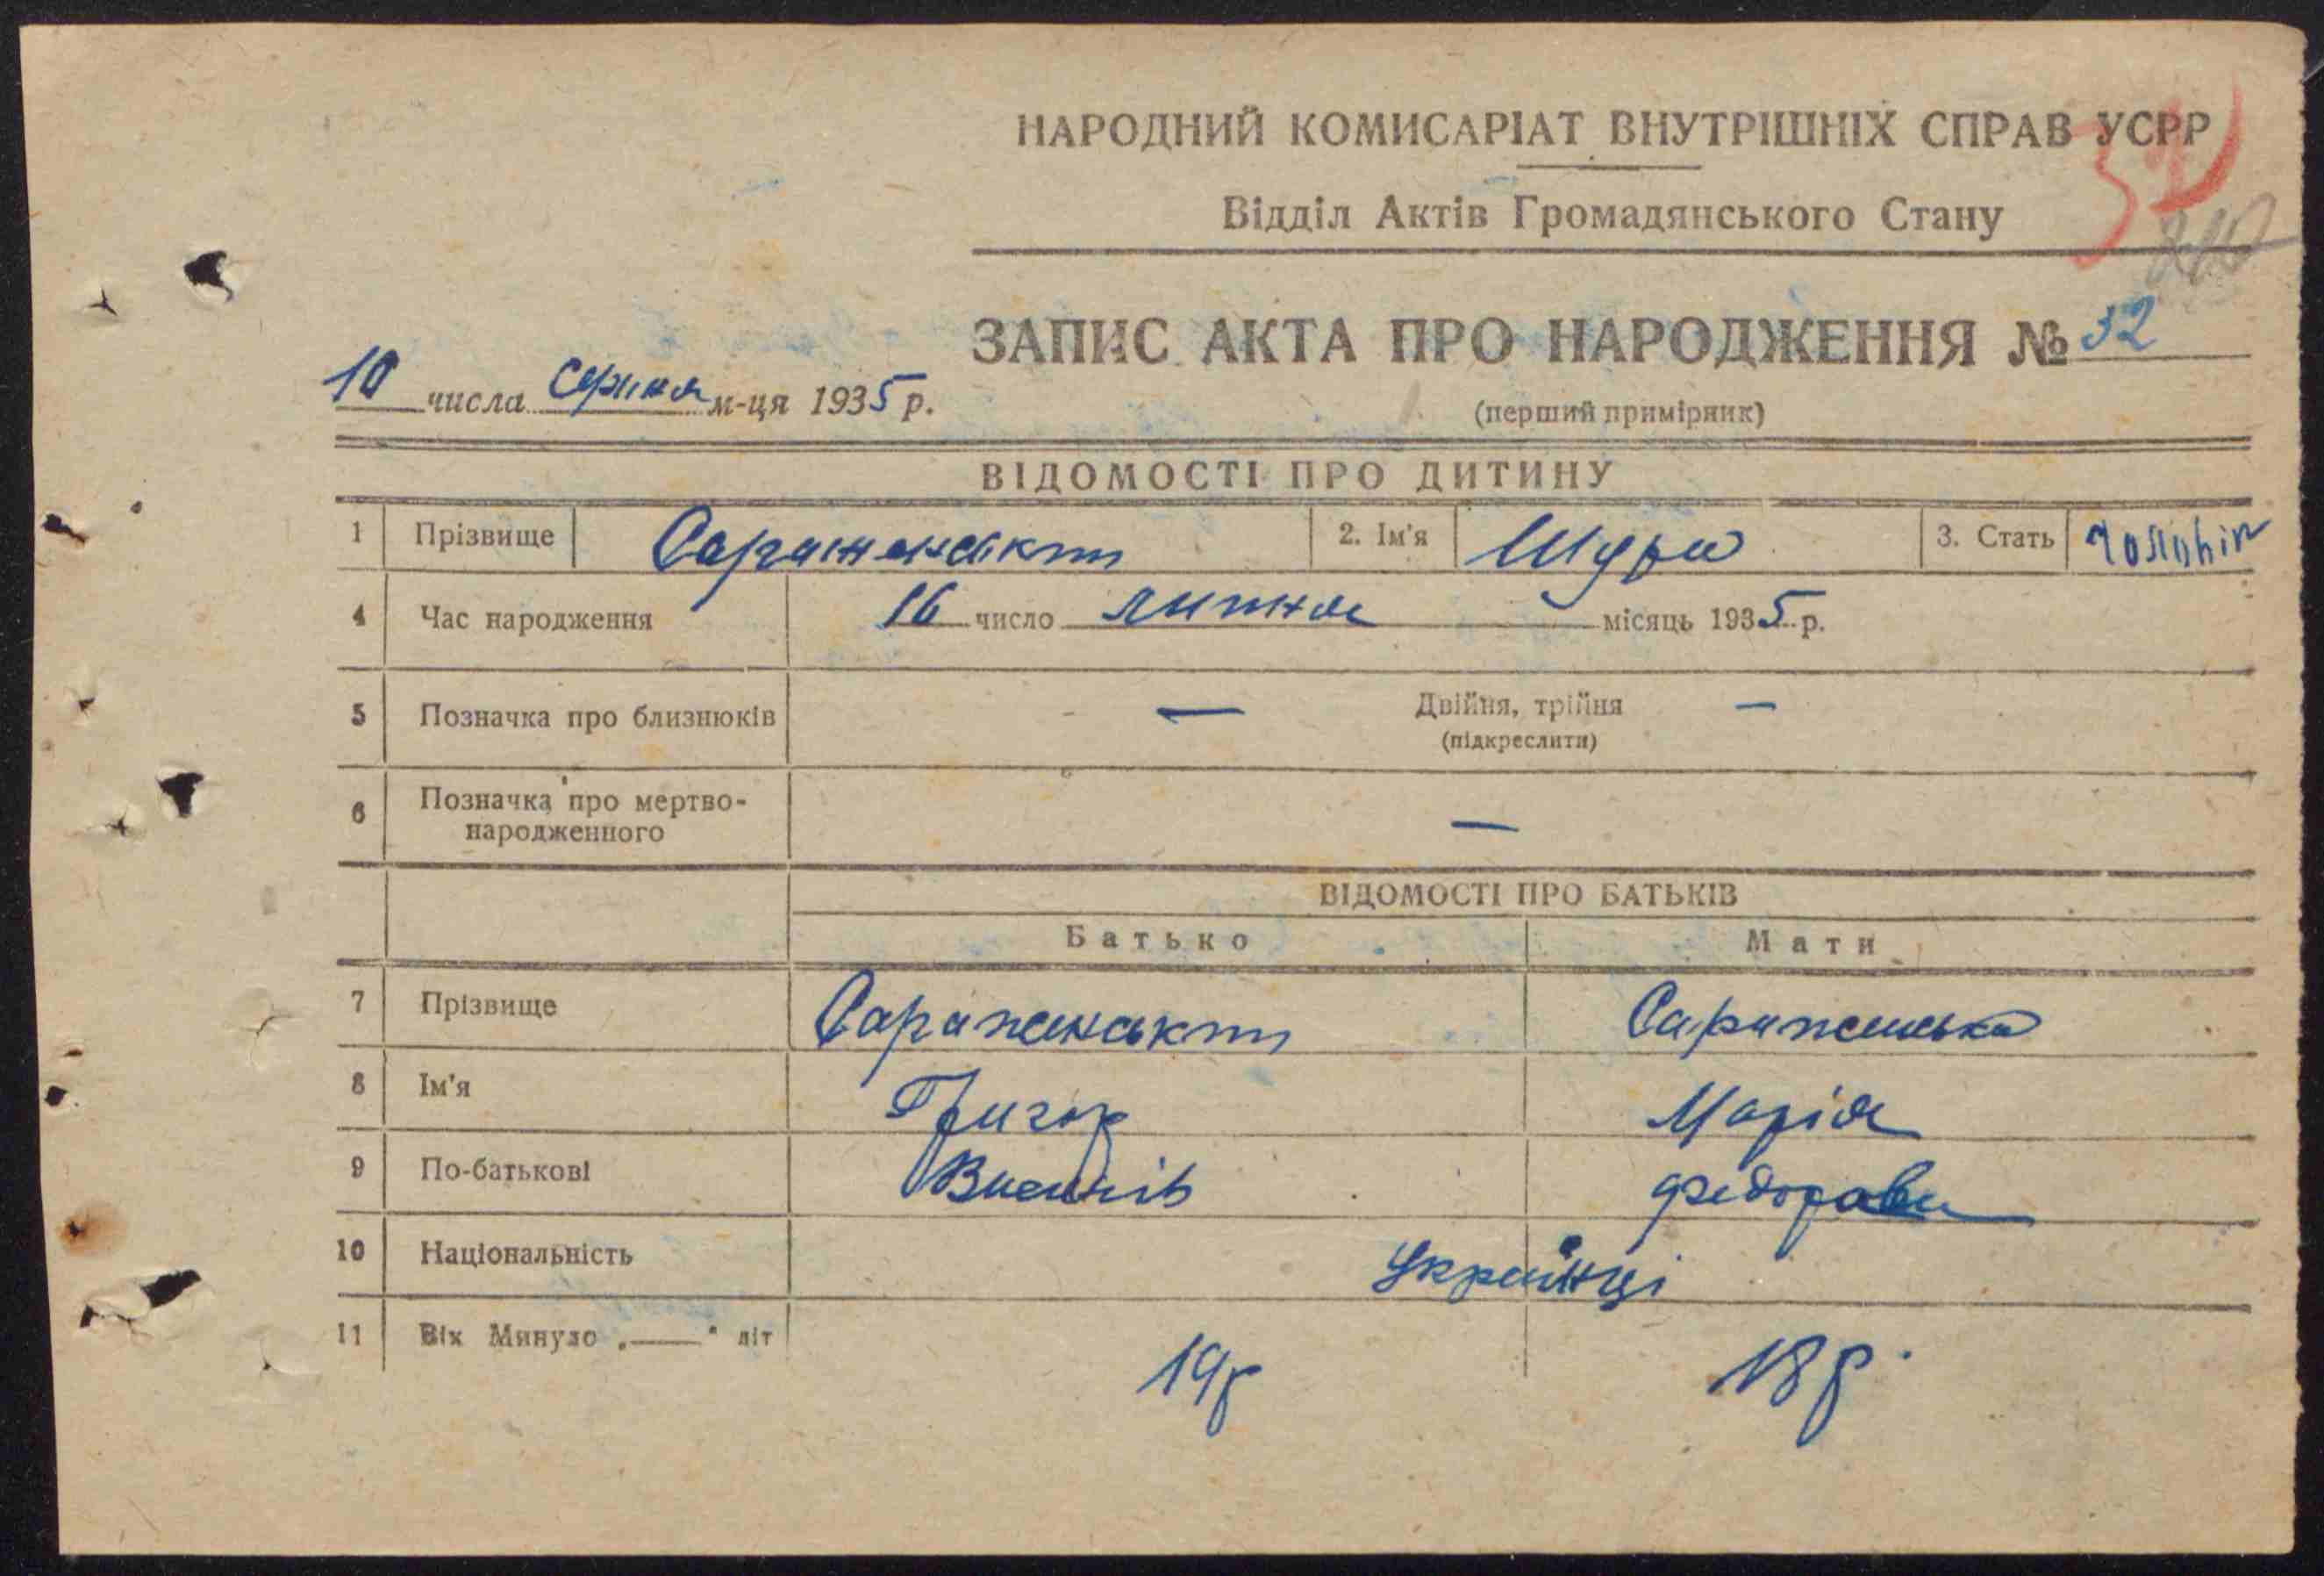 НАРОДНИЙ КОМИСАРІАТ ВНУТРІШНІХ СПРАВ УСРР
Відділ Актів Громадянського Стану
ЗАПИС АКТА ПРО НАРОДЖЕННЯ № 32
10 числа Серпня м-ця 1935 р.
(перший примірник)
ВІДОМОСТІ ПРО ДИТИНУ
1 Прізвище 2. Ім'я Шура 3. Стать
4 Час народження 16 число липня місяць 1935 р.
5 Позначка про близнюків — Двійня, трійня —
(підкреслити)
6 Позначка про мертво-
народженного —
ВІДОМОСТІ ПРО БАТЬКІВ
Батько Мати
7 Прізвище
8 Ім'я Григор Марія
9 По-батькові Федорова
10 Національність Українці
11 Вік Минуло „——“ літ 19р 18р.